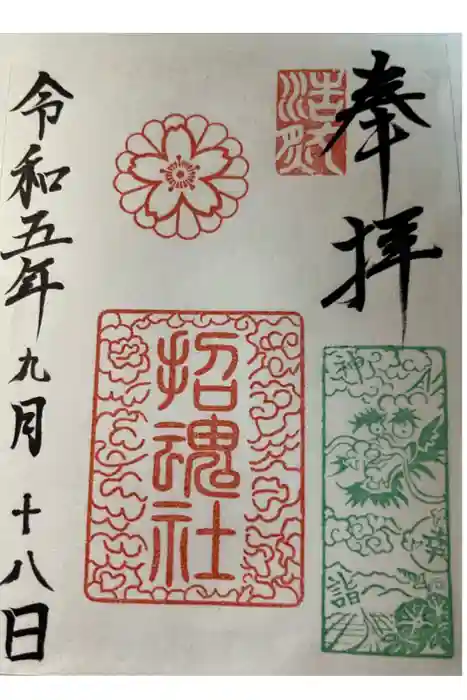 奉拝
神
詣
招魂社
令和五年九月十八日